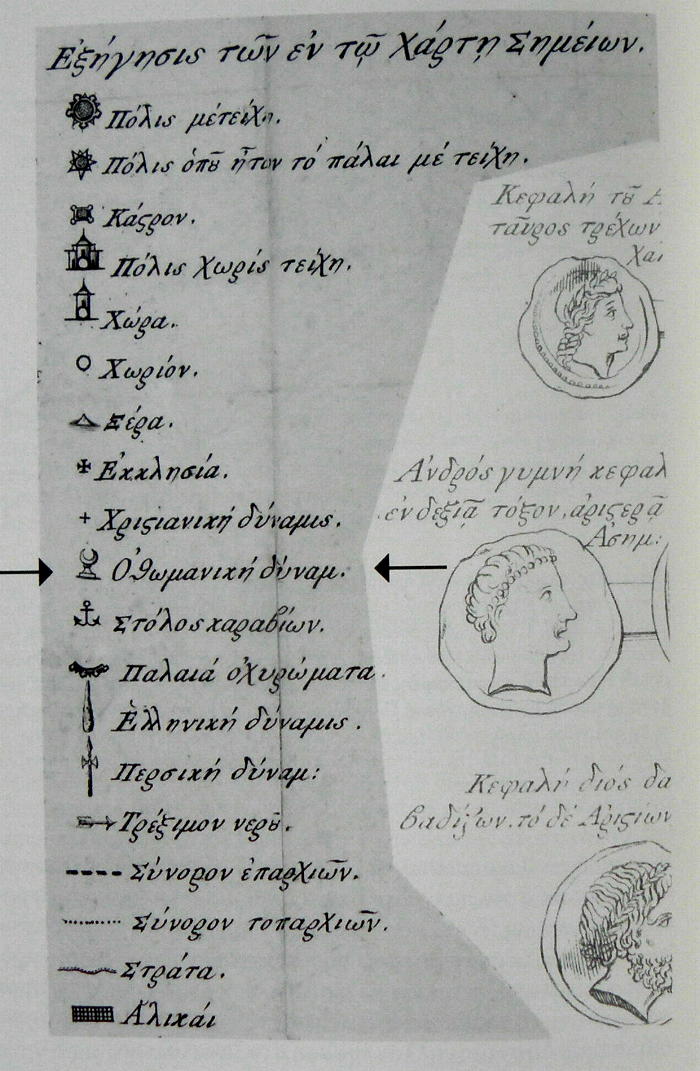 Ἐξήγησις τῶν ἐν τῷ Χάρτῃ Σημείων.
Πόλις μέτείχη.
Πόλις ὁπȣ͂ ἦτον τό πάλαι μέ τείχη.
Κάϛρον.
Πόλις Χωρίς τείχη.
Χώρα.
Χωρίον.
Ξέρα.
Ἐκκλησία.
Χριϛιανική δύναμις.
Ὀθωμανική δύναμ.
Στόλος καραβίων.
Παλαιά ὀχυρώματα.
Ἑλληνική δύναμις.
Περσική δύναμ:
Τρέξιμον νερȣ͂.
Σύνορον ἐπαρχιῶν.
Σύνορον τοπαρχιῶν.
Στράτα.
Ἁλικαί
Κεφαλή τȣ͂ Α
ταῦρος τρέχων
Χαλ
Ἀνδρός γυμνή κεφαλ
ἐν δεξιᾷ τόξον, ἀριϛερᾷ
Ἀσημ:
Κεφαλή διός δα
βαδίζων. τό δέ Ἀριϛίων